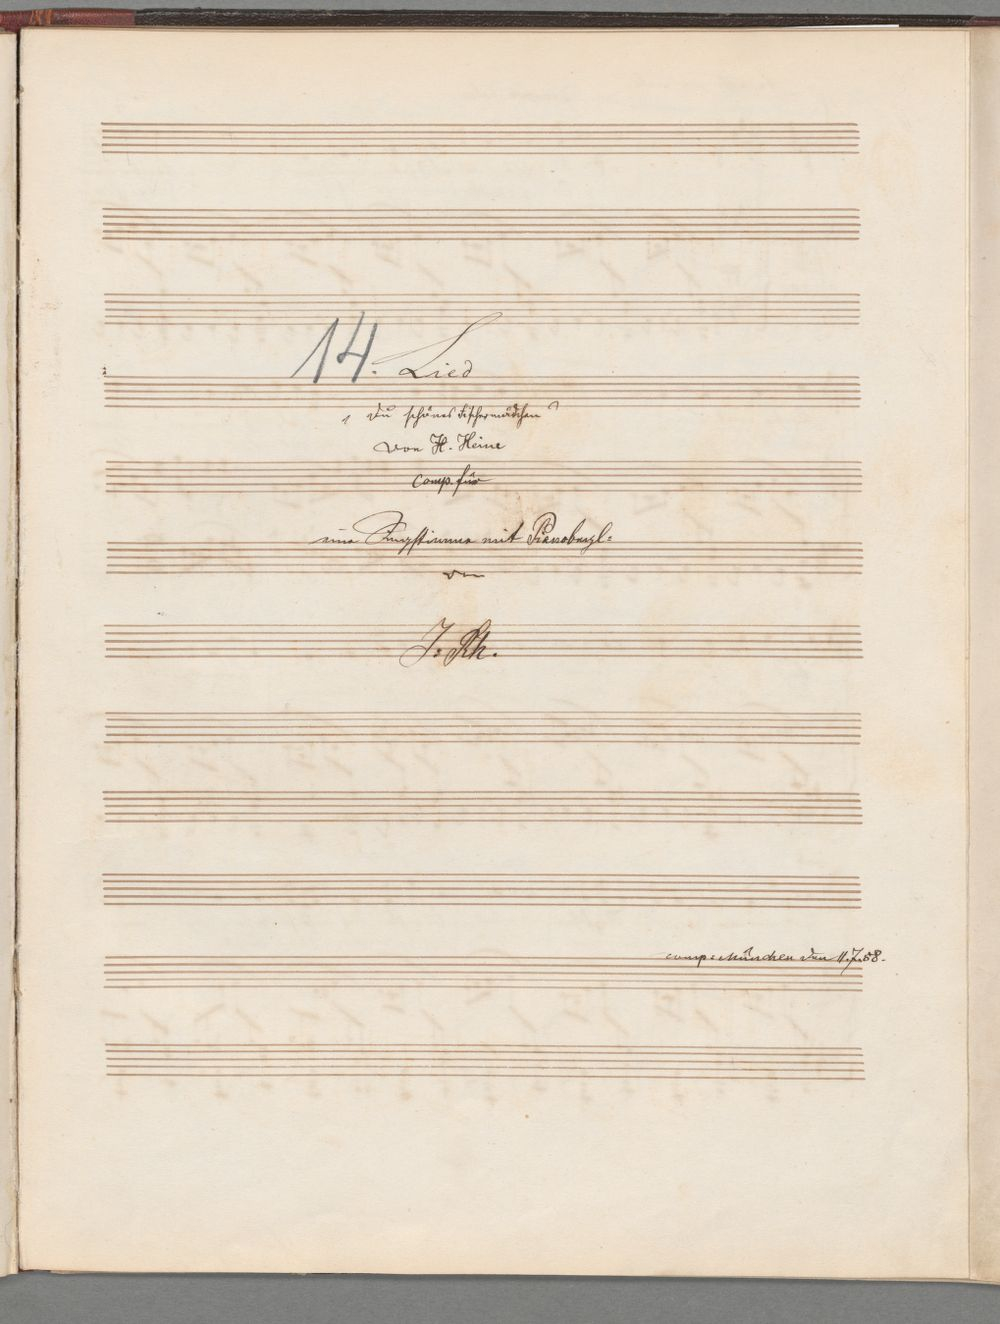 14. Lied
„ Du schönes Fischermädchen “
von H. Heine
comp. für
eine Singstimme mit Pianobegl:
von
J: Rh.
comp: München den 11.7.58.